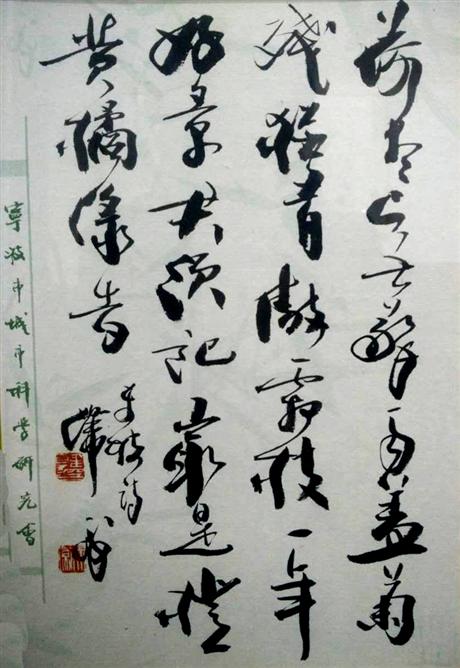 荷尽已无擎雨盖菊
残猶有傲霜枝一年
好景君须记最是橙
黄橘绿时
东坡诗
寧波市城市科学研究會